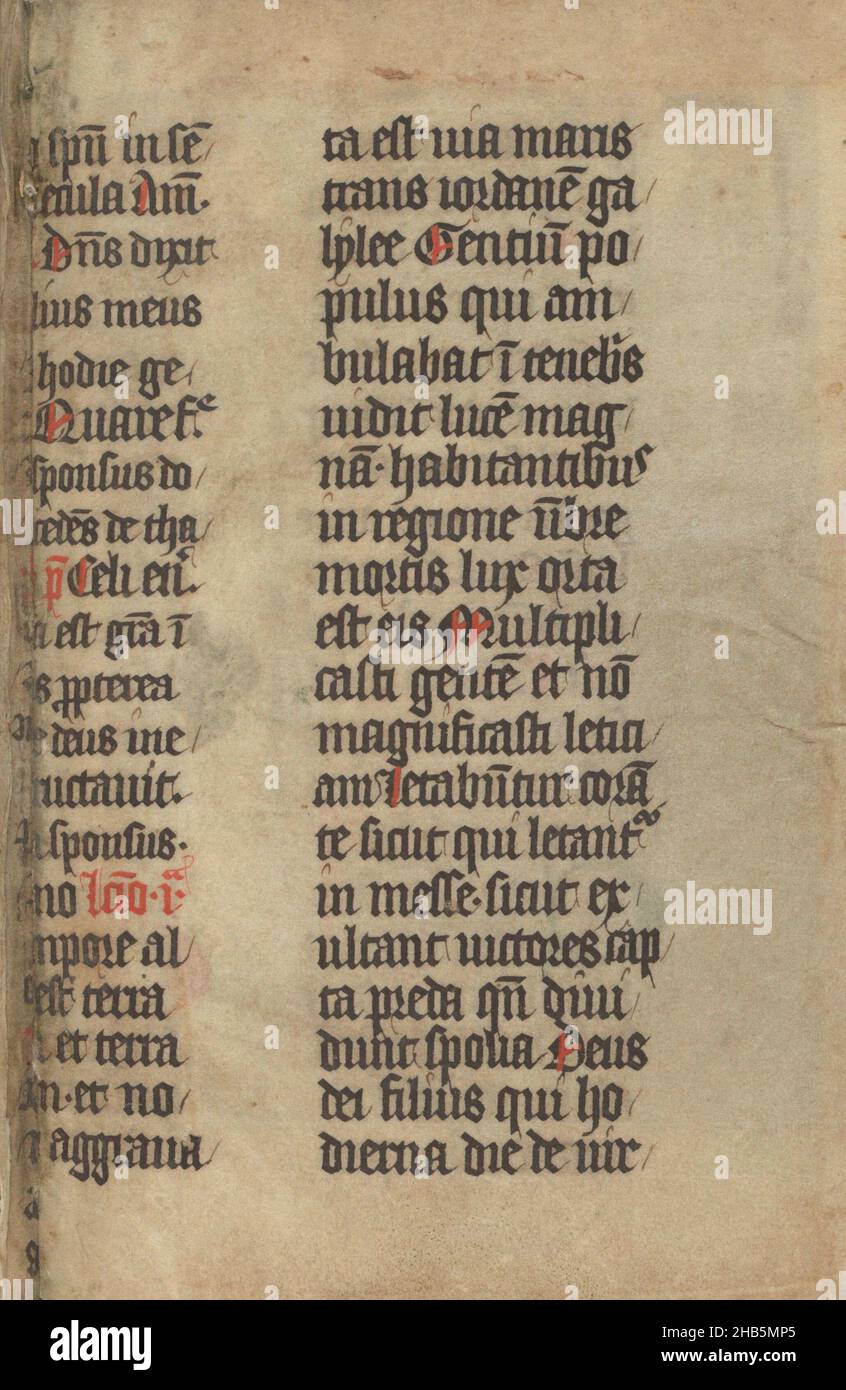 spū in sē
cula Am̄.
Dn̄s dixit
lius meus
hodie ge
Quare f.ͨ
sponsus do
cedēs de tha
p̄ Celi en̄.
est gr̄a ī
s ꝓpterea
deus in e
ructauit.
sponsus.
no lc̄o.i.ᵃ
mpore al
est terra
et terra
et no
aggraua
ta est uia maris
trans iordanē ga
lylee Gentiū po
pulus qui am
bulabat ī teneb̓s
uidit lucē mag
nā. habitantibuˢ
in regione ūbre
mortis lux orta
est eis Multipli
casti gentē et nō
magnificasti letici
am letabūtur corā
te sicut qui letant᷑
in messe. sicut ex
ultant uictores cap
ta preda qn̄ diui
dunt spolia Deus
dei filius qui ho
dierna die de uir
alamy
Image ID: 2HB5MP5
www.alamy.com